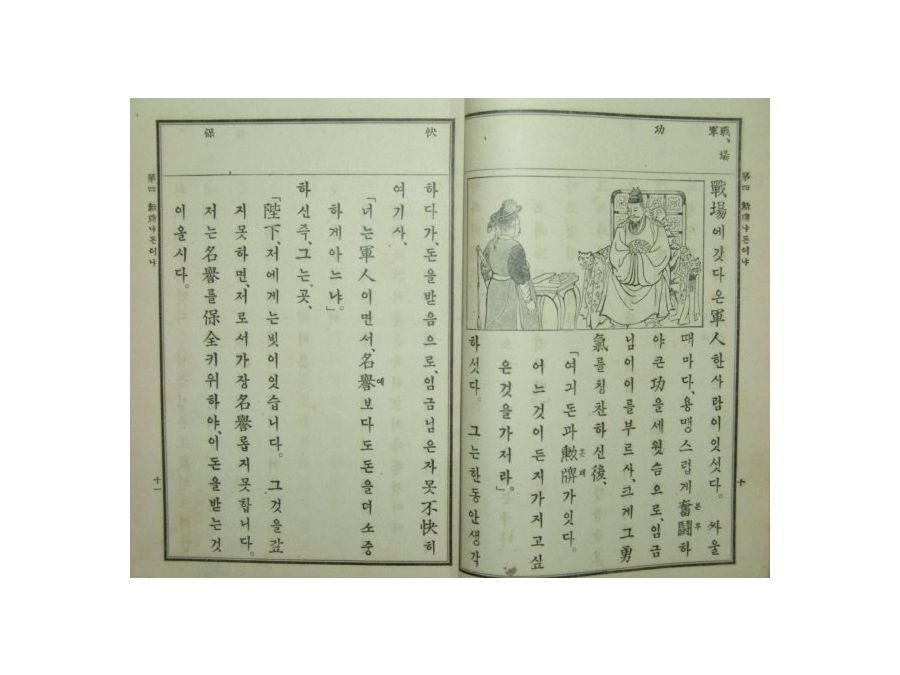 戰、場
軍
功
戰場에갓다온軍人한사람이잇섯다。 싸울
때마다、용맹스럽게奮鬪하
분투
야큰功을세웟슴으로、임금
님이이를부르사、크게그勇
氣를칭찬하신後、
「여긔돈과勳牌가잇다。
훈패
어느것이든지가지고십
은것을가저라。」
하섯다。 그는한동안생각
第四 勳牌냐돈이냐
十
快
保
하다가、돈을받음으로、임금님은자못不快히
여기사、
「너는軍人이면서、名譽보다도돈을더소중
예
하게아느냐。」
하신즉、그는、곳、
「陛下、저에게는빗이잇습니다。 그것을갚
지못하면、저로서가장名譽롭지못합니다。
저는名譽를保全키위하야、이돈을받는것
이올시다。
第四 勳牌냐돈이냐
十一